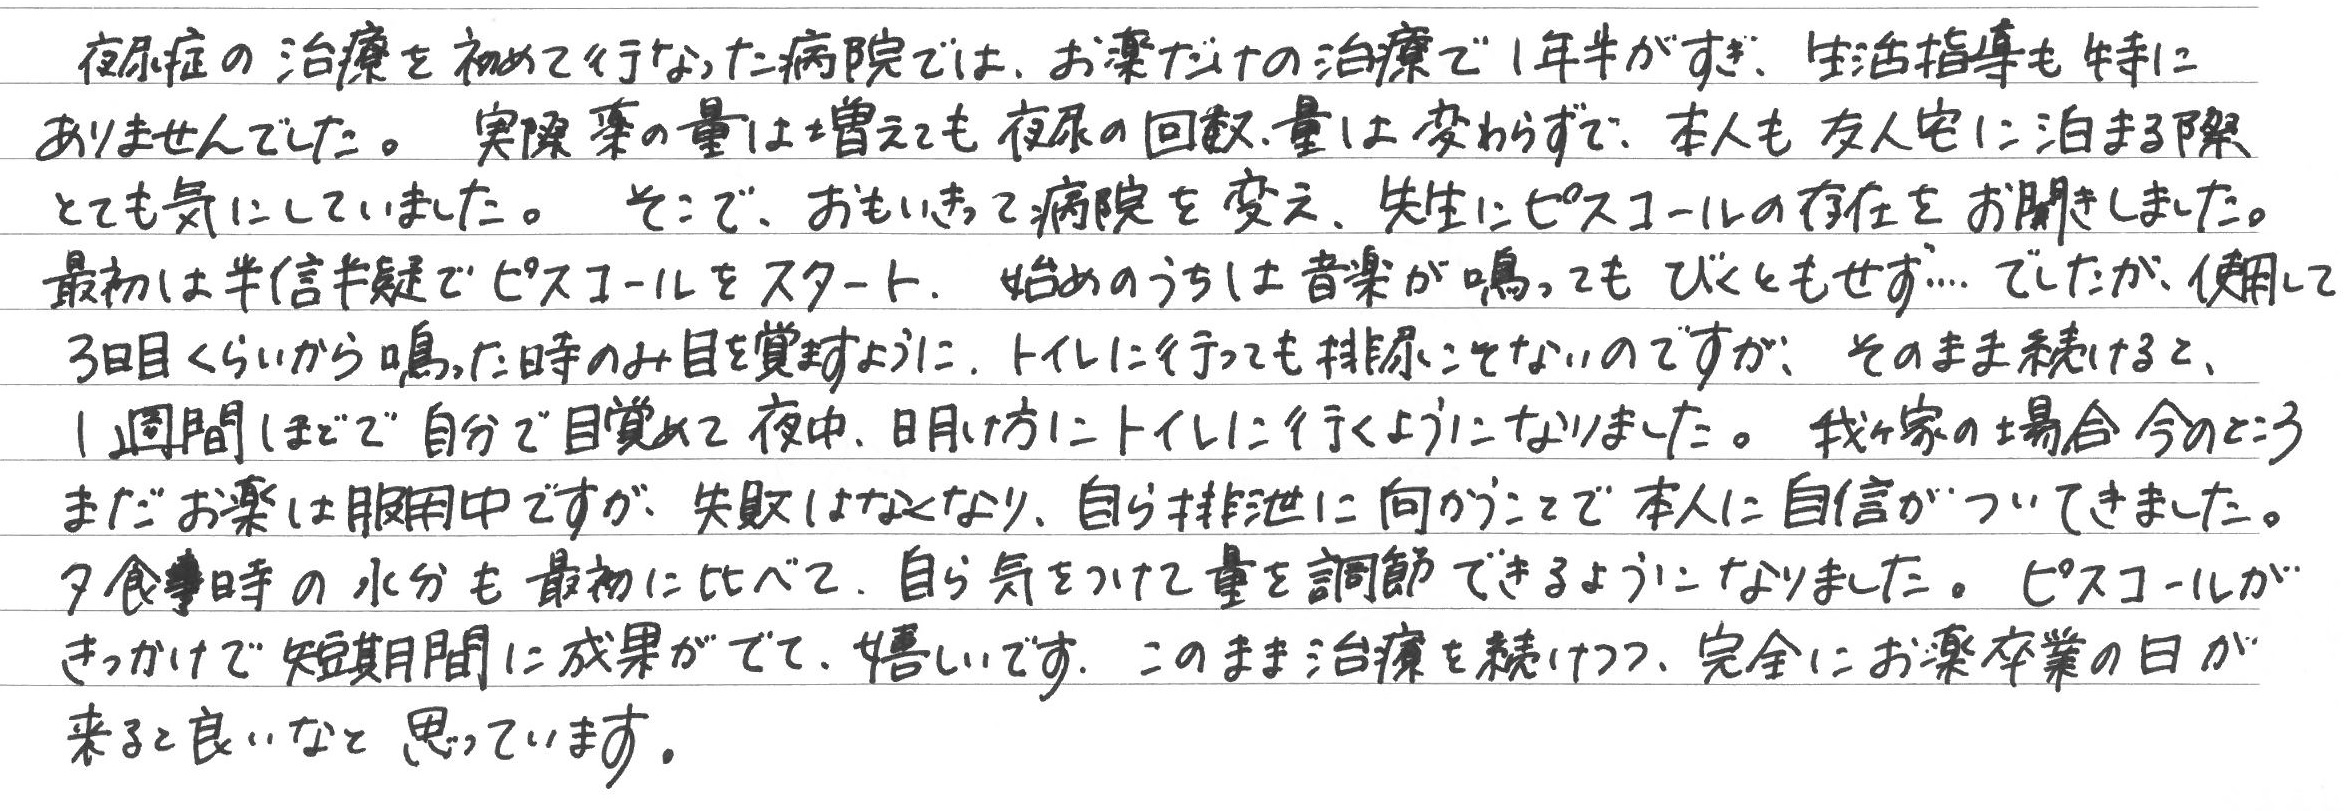 夜尿症の治療を初めて行なった病院では、お薬だけの治療で1年半がすぎ、生活指導も特に
ありませんでした。 実際薬の量は増えても夜尿の回数、量は変わらずで、本人も友人宅に泊まる際
とても気にしていました。 そこで、おもいきって病院を変え、先生にピスコールの存在をお聞きしました。
最初は半信半疑でピスコールをスタート. 始めのうちは音楽が鳴ってもびくともせず…. でしたが、使用して
3日目くらいから鳴った時のみ目を覚ますように. トイレに行っても排尿こそないのですが、そのまま続けると、
1週間ほどで自分で目覚めて夜中、明け方にトイレに行くようになりました。 我が家の場合今のところ
まだお薬は服用中ですが、失敗はなくなり、自ら排泄に向かうことで本人に自信がついてきました。
夕食時の水分も最初に比べて、自ら気をつけて量を調節できるようになりました。 ピスコールが
きっかけで短期間に成果がでて、嬉しいです. このまま治療を続けつつ、完全にお薬卒業の日が
来ると良いなと思っています.